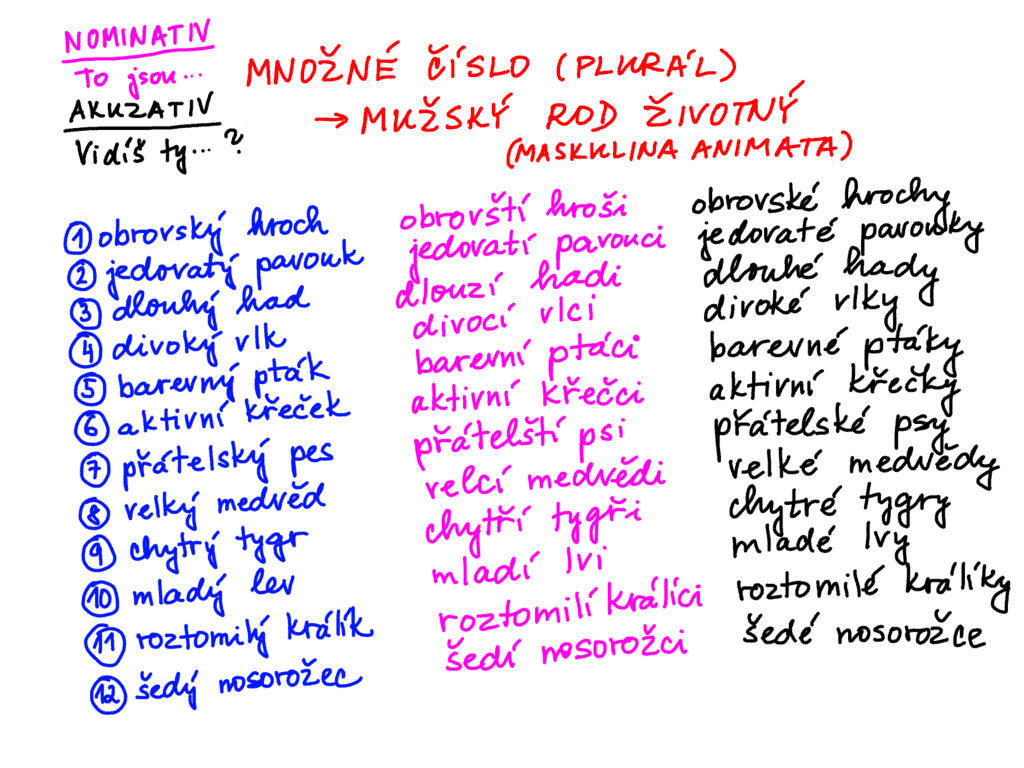 NOMINATIV
To jsou...
AKUZATIV
Vidíš ty... ?
MNOŽNÉ ČÍSLO (PLURÁL)
→ MUŽSKÝ ROD ŽIVOTNÝ
(MASKULINA ANIMATA)
1 obrovský hroch obrovští hroši obrovské hrochy
2 jedovatý pavouk jedovatí pavouci jedovaté pavouky
3 dlouhý had dlouzí hadi dlouhé hady
4 divoký vlk divocí vlci divoké vlky
5 barevný pták barevní ptáci barevné ptáky
6 aktivní křeček aktivní křečci aktivní křečky
7 přátelský pes přátelští psi přátelské psy
8 velký medvěd velcí medvědi velké medvědy
9 chytrý tygr chytří tygři chytré tygry
10 mladý lev mladí lvi mladé lvy
11 roztomilý králík roztomilí králíci roztomilé králíky
12 šedý nosorožec šedí nosorožci šedé nosorožce